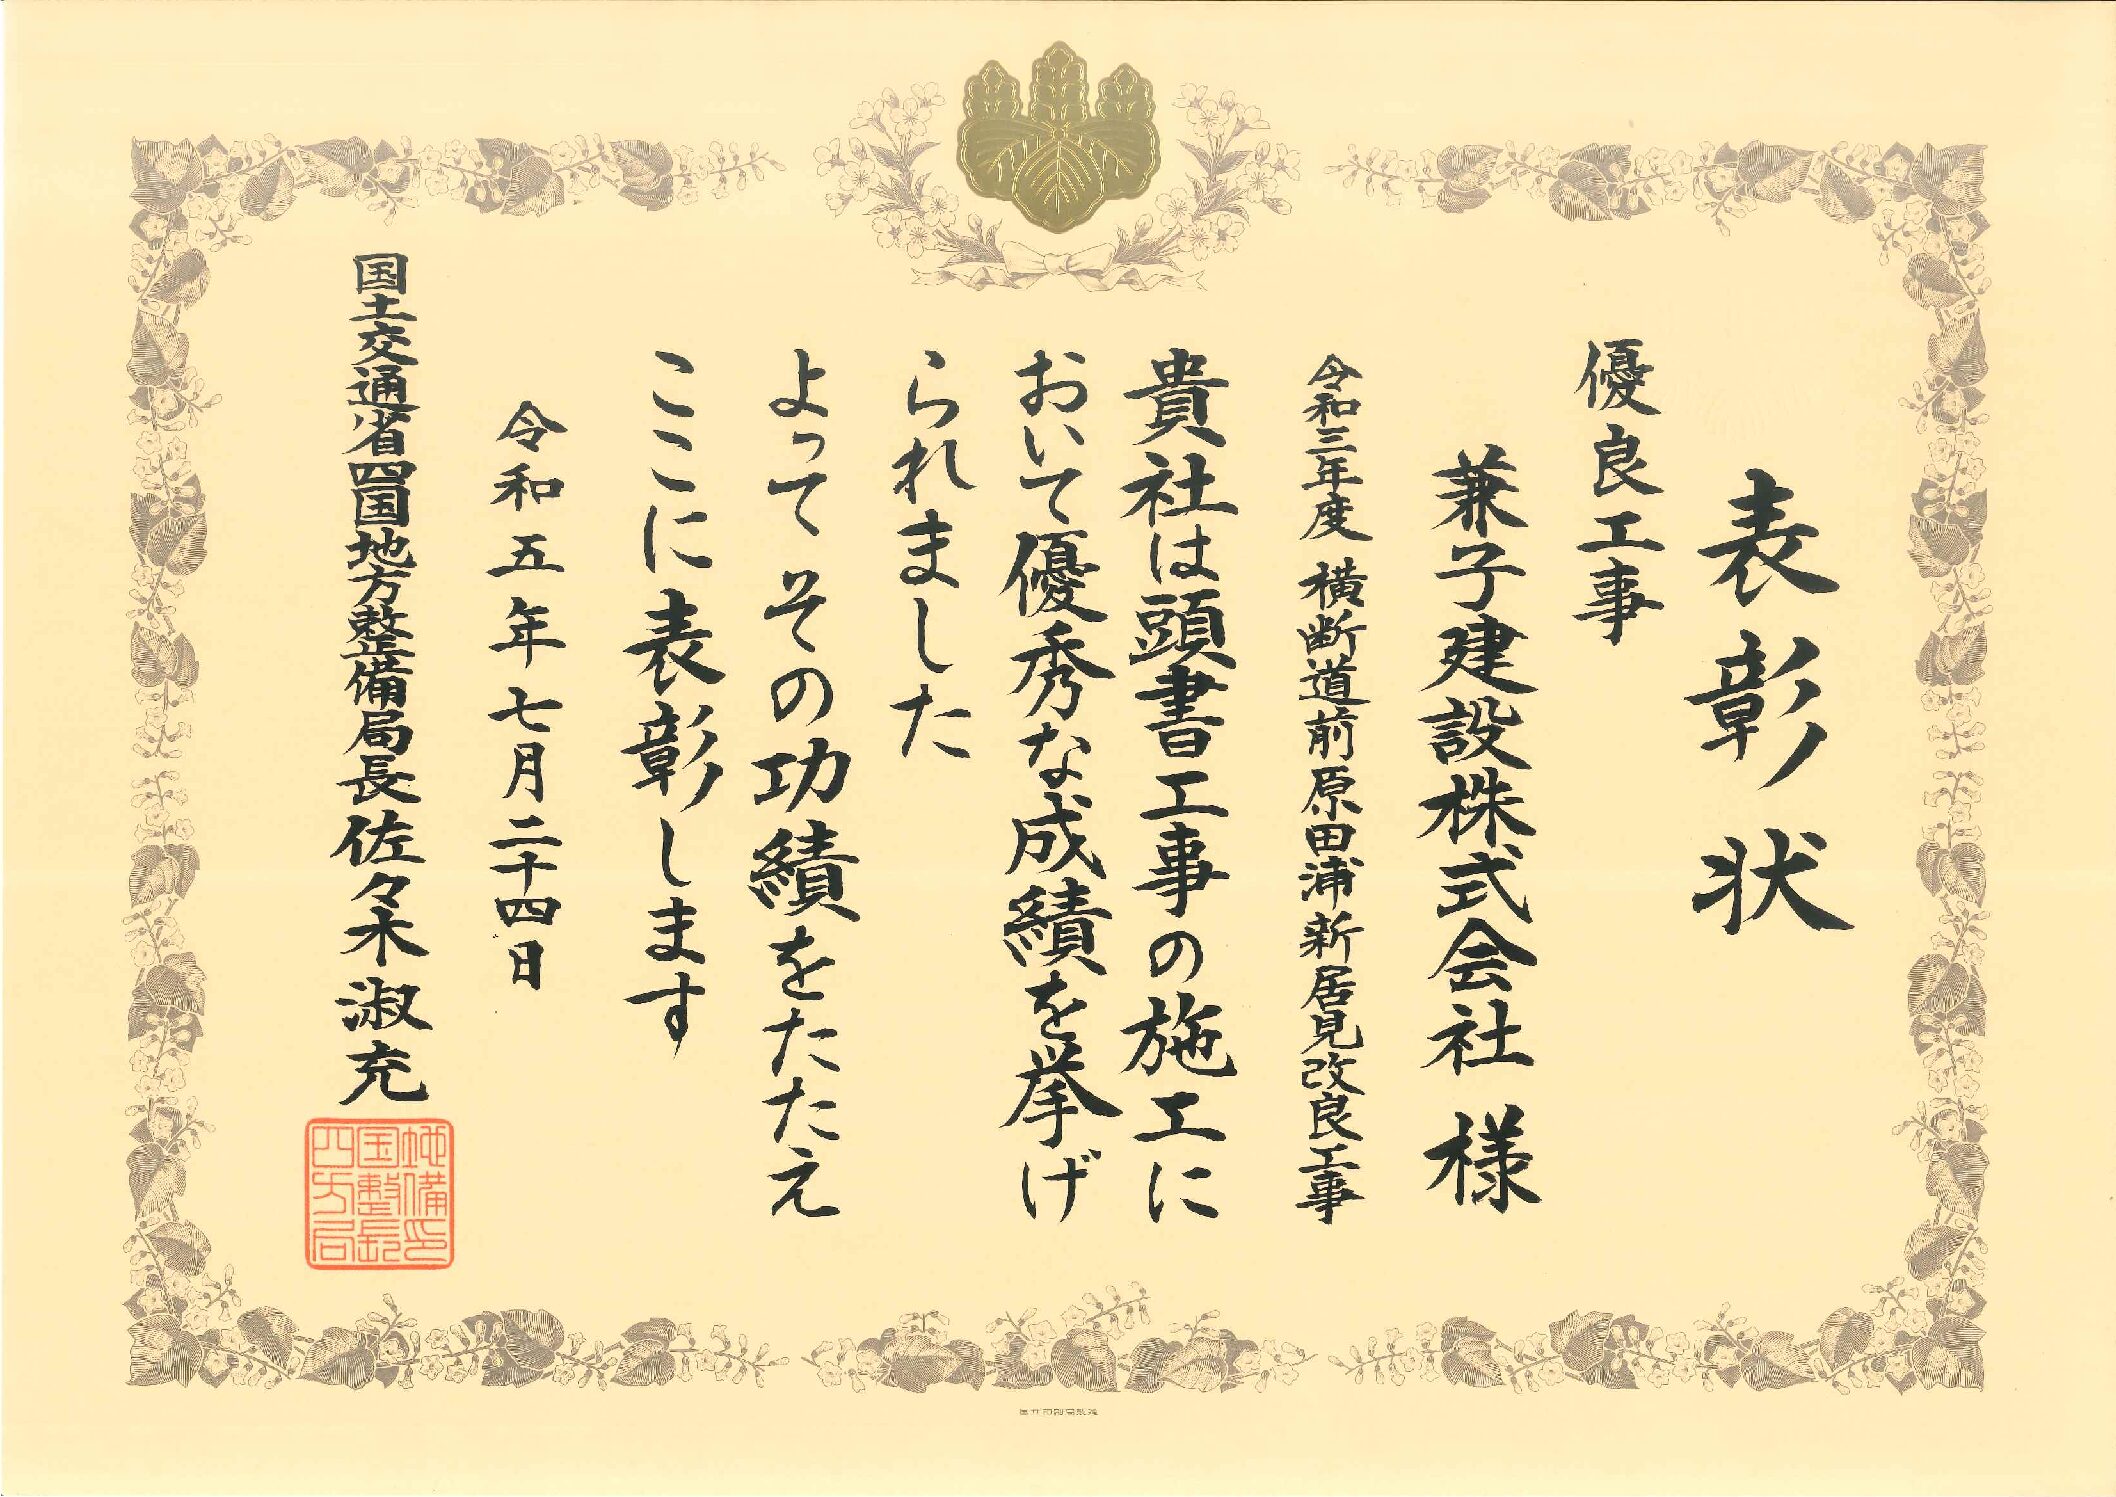 表彰状
優良工事
兼子建設株式会社 様
令和三年度 横断道前原田浦新居見改良工事
貴社は頭書工事の施工に
おいて優秀な成績を挙げ
られました
よってその功績をたたえ
ここに表彰します
令和五年七月二十四日
国土交通省四国地方整備局長 佐々木淑充
四国地方整備局長印